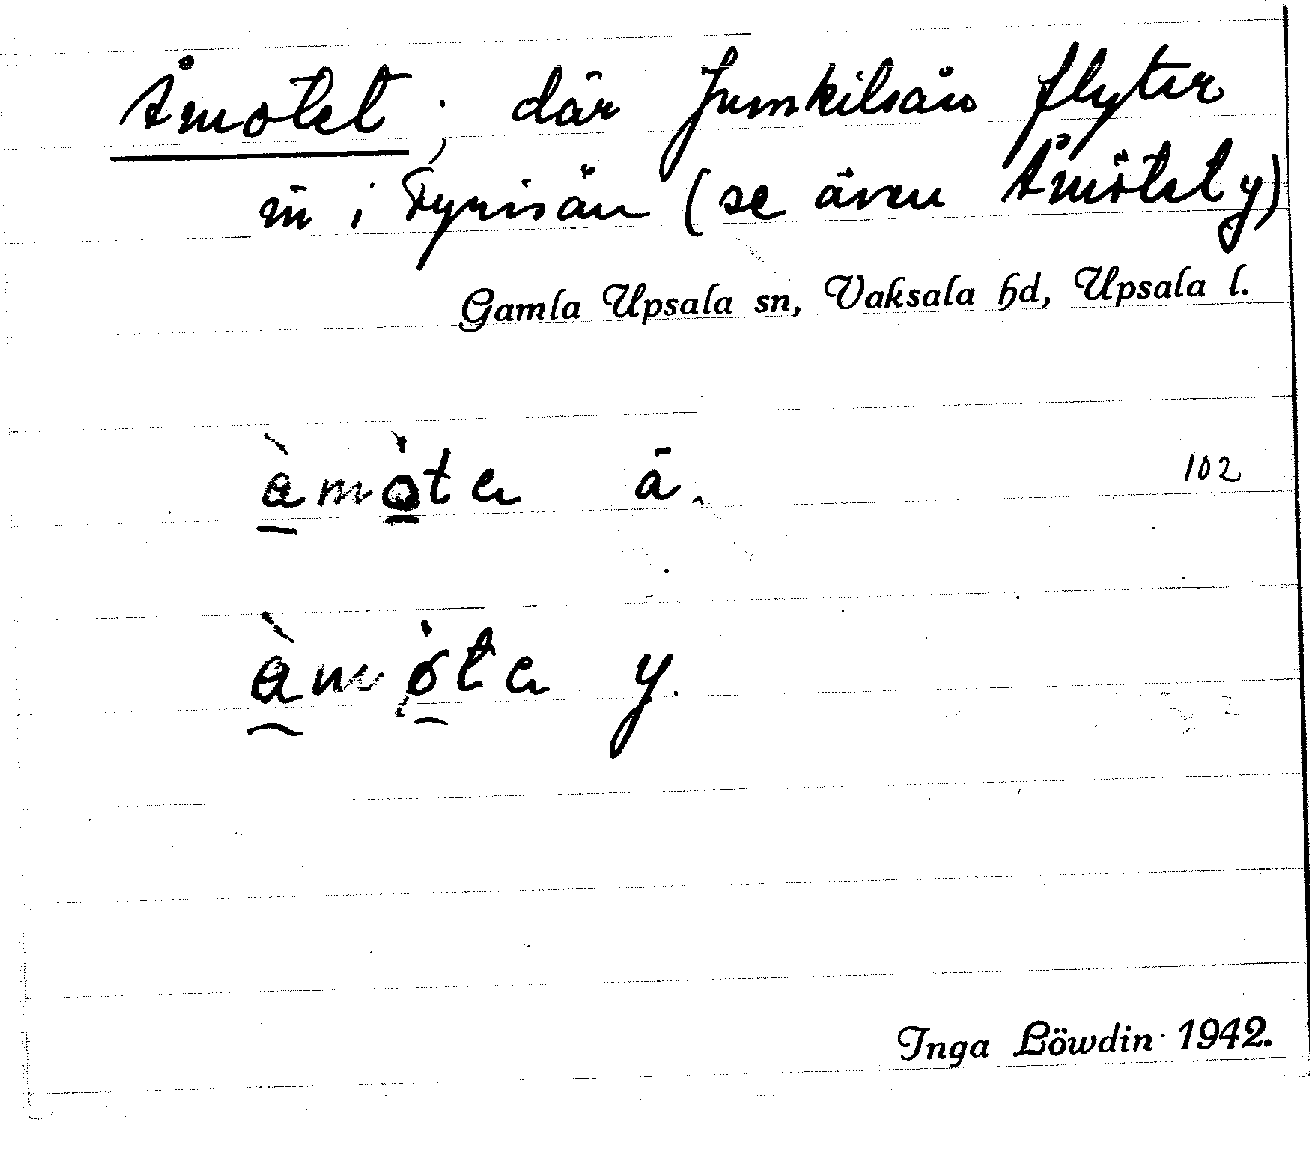 Åmotet, där Jumkilsån flyter
in i Fyrisån (se även Åmötet y)
Gamla Upsala sn, Vaksala hd, Upsala l.
àmòta ä. 102
àmòta y.
Inga Löwdin 1942.